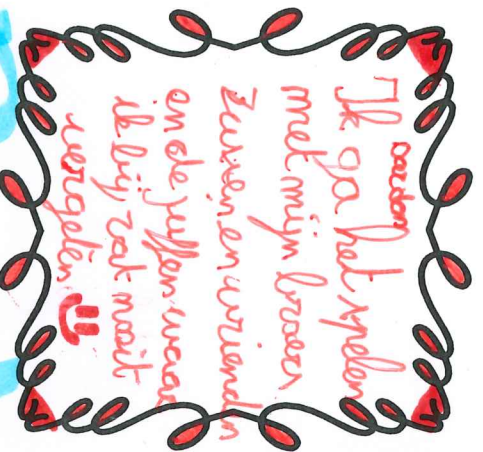 Ik ga het spelen
met mijn broers
zussen en vriendin
en de juffen waar
ik bij zat nooit
vergeten